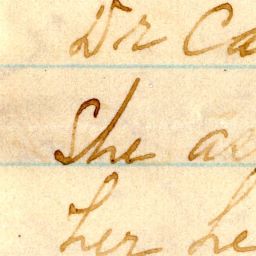 Dr Ca
She as
her he